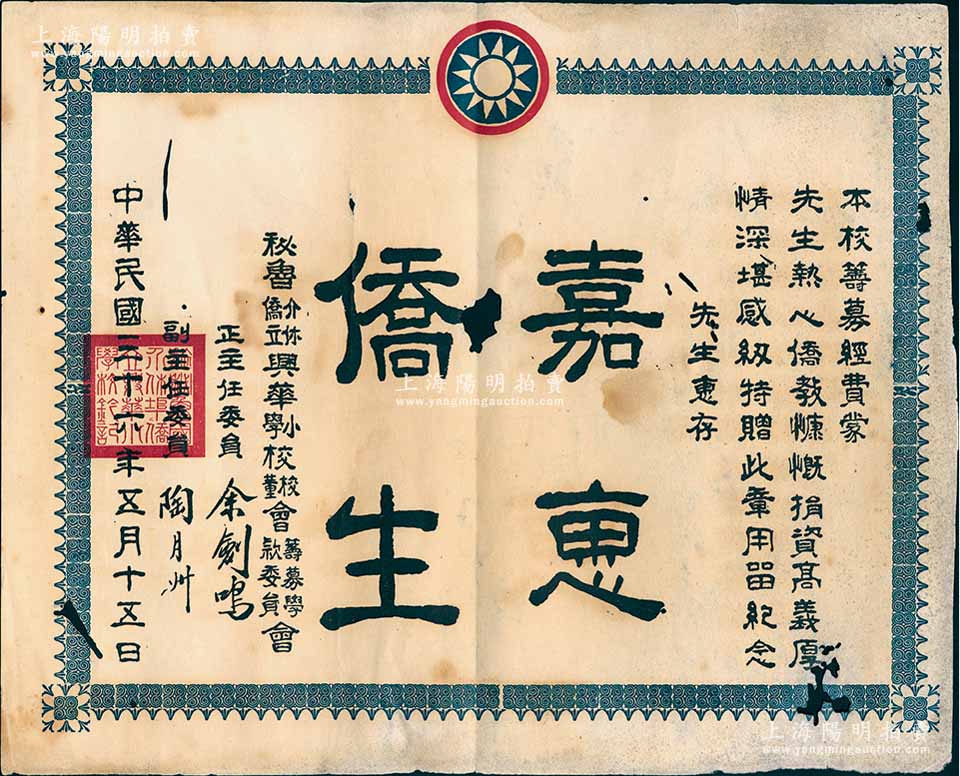 本校籌募經費蒙
先生熱心僑教慷慨捐資高義厚
情深堪感紉特贈此章用留紀念
先生惠存
嘉惠
僑生
秘魯介休僑立興華小學校校董會籌募學款委員會
正主任委員 余劍鳴
副主任委員 陶月州
中華民國三十六年五月十五日
上海陽明拍賣
www.yangmingauction.com
上海陽明拍賣
www.yangmingauction.com
上海陽明拍賣
www.yangmingauction.com